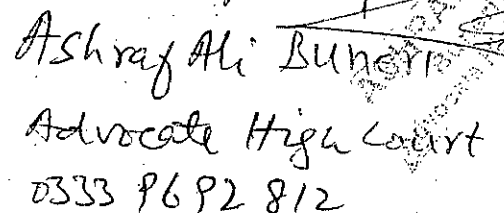 Ashraf Ali Buneri
Advocate High Court
0333 9692 812